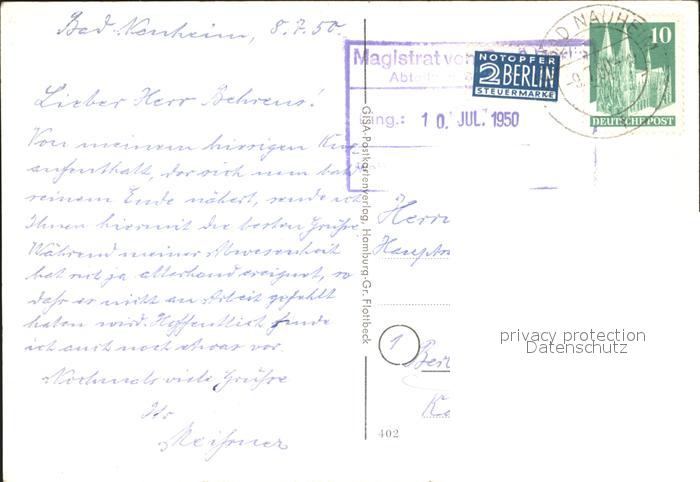 Bad Nauheim, 8.7.50.
Lieber Herr Behrens!
Von meinem hiesigen Kur
aufenthalt, der sich nun bald
seinem Ende nähert, sende ich
Ihnen hiermit die besten Grüße.
Während meiner Abwesenheit
hat sich ja allerhand ereignet, so
daß es nicht an Arbeit gefehlt
haben wird. Hoffentlich finde
ich auch noch etwas vor.
Nochmals viele Grüße
Ihr
Meißner
GISA-Postkartenverlag, Hamburg-Gr. Flottbeck
402
Magistrat von
Eing.: 10. JUL. 1950
NOTOPFER
2 BERLIN
STEUERMARKE
BAD NAUHEIM
10
DEUTSCHE POST
Herrn
1
privacy protection
Datenschutz